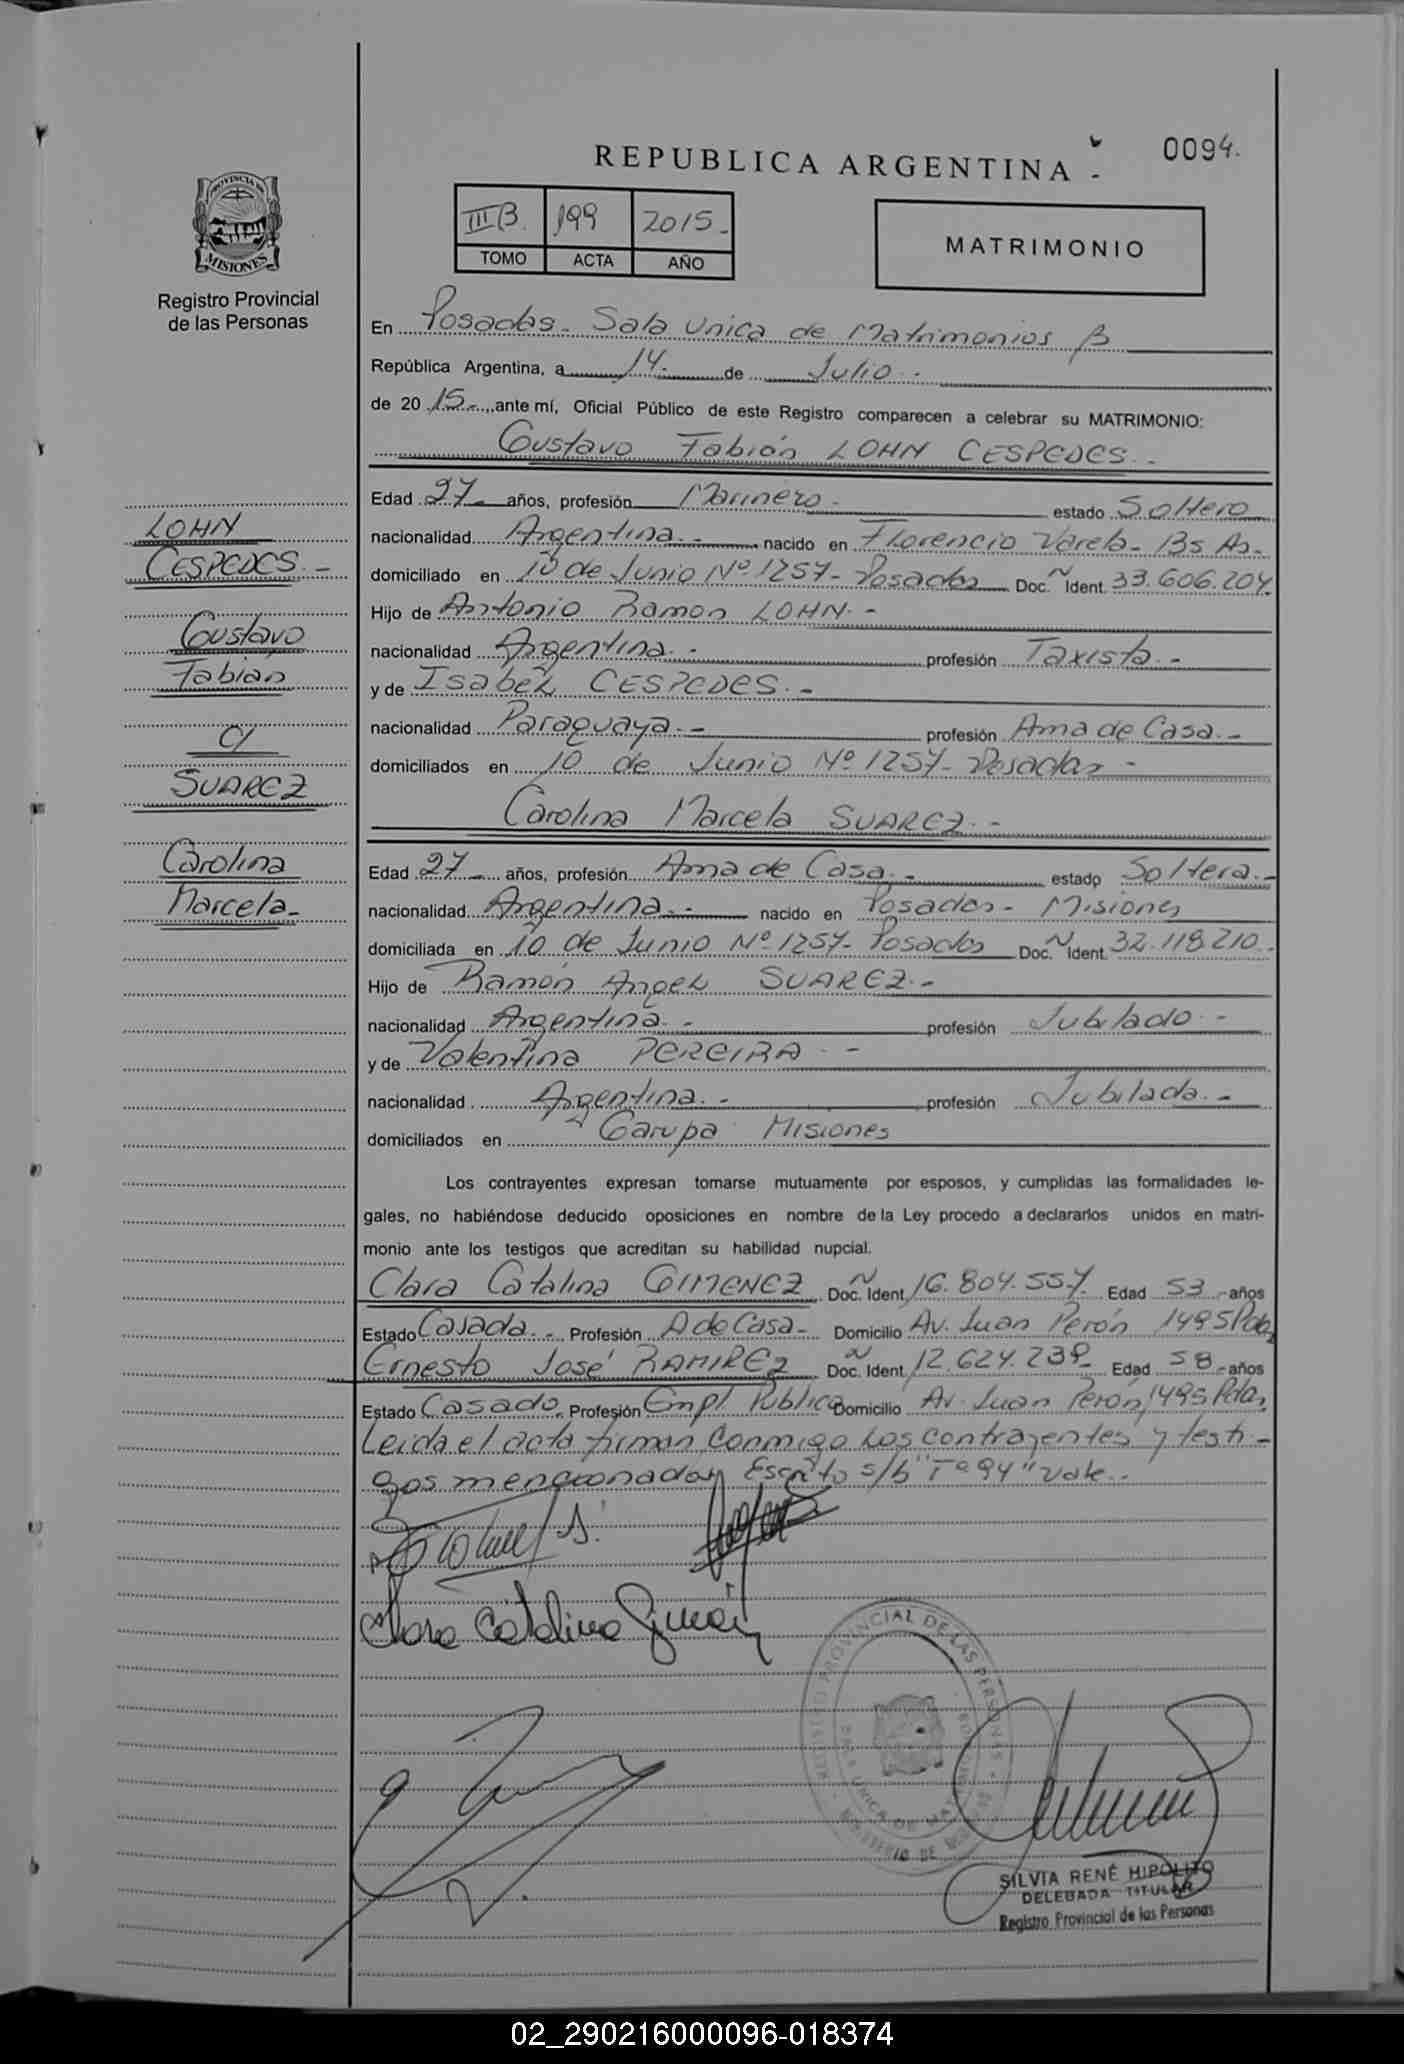 0094.
REPUBLICA ARGENTINA -
PROVINCIA DE
MISIONES
Registro Provincial
de las Personas
III B. 199 2015.-
TOMO ACTA AÑO
MATRIMONIO
En Posadas - Sala Unica de Matrimonios B
República Argentina, a 14.- de Julio.-
de 20 15.- ante mí, Oficial Público de este Registro comparecen a celebrar su MATRIMONIO:
Gustavo Fabián LOHN CESPEDES.-
Edad 27.- años, profesión Marinero.- estado Soltero
nacionalidad Argentina.- nacido en Florencio Varela - Bs As.-
domiciliado en 10 de Junio Nº 1257- Posadas Doc. Ñ Ident. 33.606.204.
Hijo de Antonio Ramon LOHN.-
nacionalidad Argentina.- profesión Taxista.-
y de Isabel CESPEDES.-
nacionalidad Paraguaya.- profesión Ama de Casa.-
domiciliados en 10 de Junio Nº 1257- Posadas -
Carolina Marcela SUAREZ.-
Edad 27 años, profesión Ama de Casa.- estado Soltera.-
nacionalidad Argentina.- nacido en Posadas - Misiones
domiciliada en 10 de Junio Nº 1257- Posadas Doc. Ñ Ident. 32.118.210.-
Hijo de Ramón Angel SUAREZ.-
nacionalidad Argentina.- profesión Jubilado.-
y de Valentina PEREIRA.-
nacionalidad Argentina.- profesión Jubilada.-
domiciliados en Garupa Misiones
LOHN
CESPEDES.-
Gustavo
Fabián
c/
SUAREZ
Carolina
Marcela-
Los contrayentes expresan tomarse mutuamente por esposos, y cumplidas las formalidades le-
gales, no habiéndose deducido oposiciones en nombre de la Ley procedo a declararlos unidos en matri-
monio ante los testigos que acreditan su habilidad nupcial.
Clara Catalina GIMENEZ Doc. Ñ Ident. 16.804.557. Edad 53 años
Estado Casada.- Profesión A de Casa- Domicilio Av. Juan Perón 1495 Pdas
Ernesto José RAMIREZ Doc. Ñ Ident. 12.624.239 Edad 58 años
Estado Casado. Profesión Empl. Publico Domicilio Av. Juan Perón 1495 Pdas,
Leida el acta firman conmigo los contrayentes y testi-
gos mencionados Escrito s/b "Tº 94" Vale.-
Clara Catalina
REGISTRO PROVINCIAL DE LAS PERSONAS
SILVIA RENÉ HIPOLITO
DELEGADA TITULAR
Registro Provincial de las Personas
02_290216000096-018374